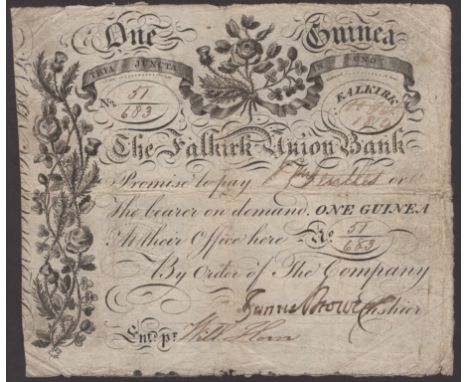 One Guinea
TRIA JUNCTA IN UNO
No. 51/683 FALKIRK
The Falkirk Union Bank
Promise to pay or
The bearer on demand, ONE GUINEA
At their Office here No. 51/683
By Order of The Company
Cashier
Entd. pr. Will